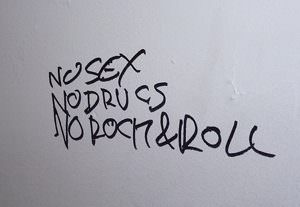 NO SEX
NO DRUGS
NO ROCK & ROLL